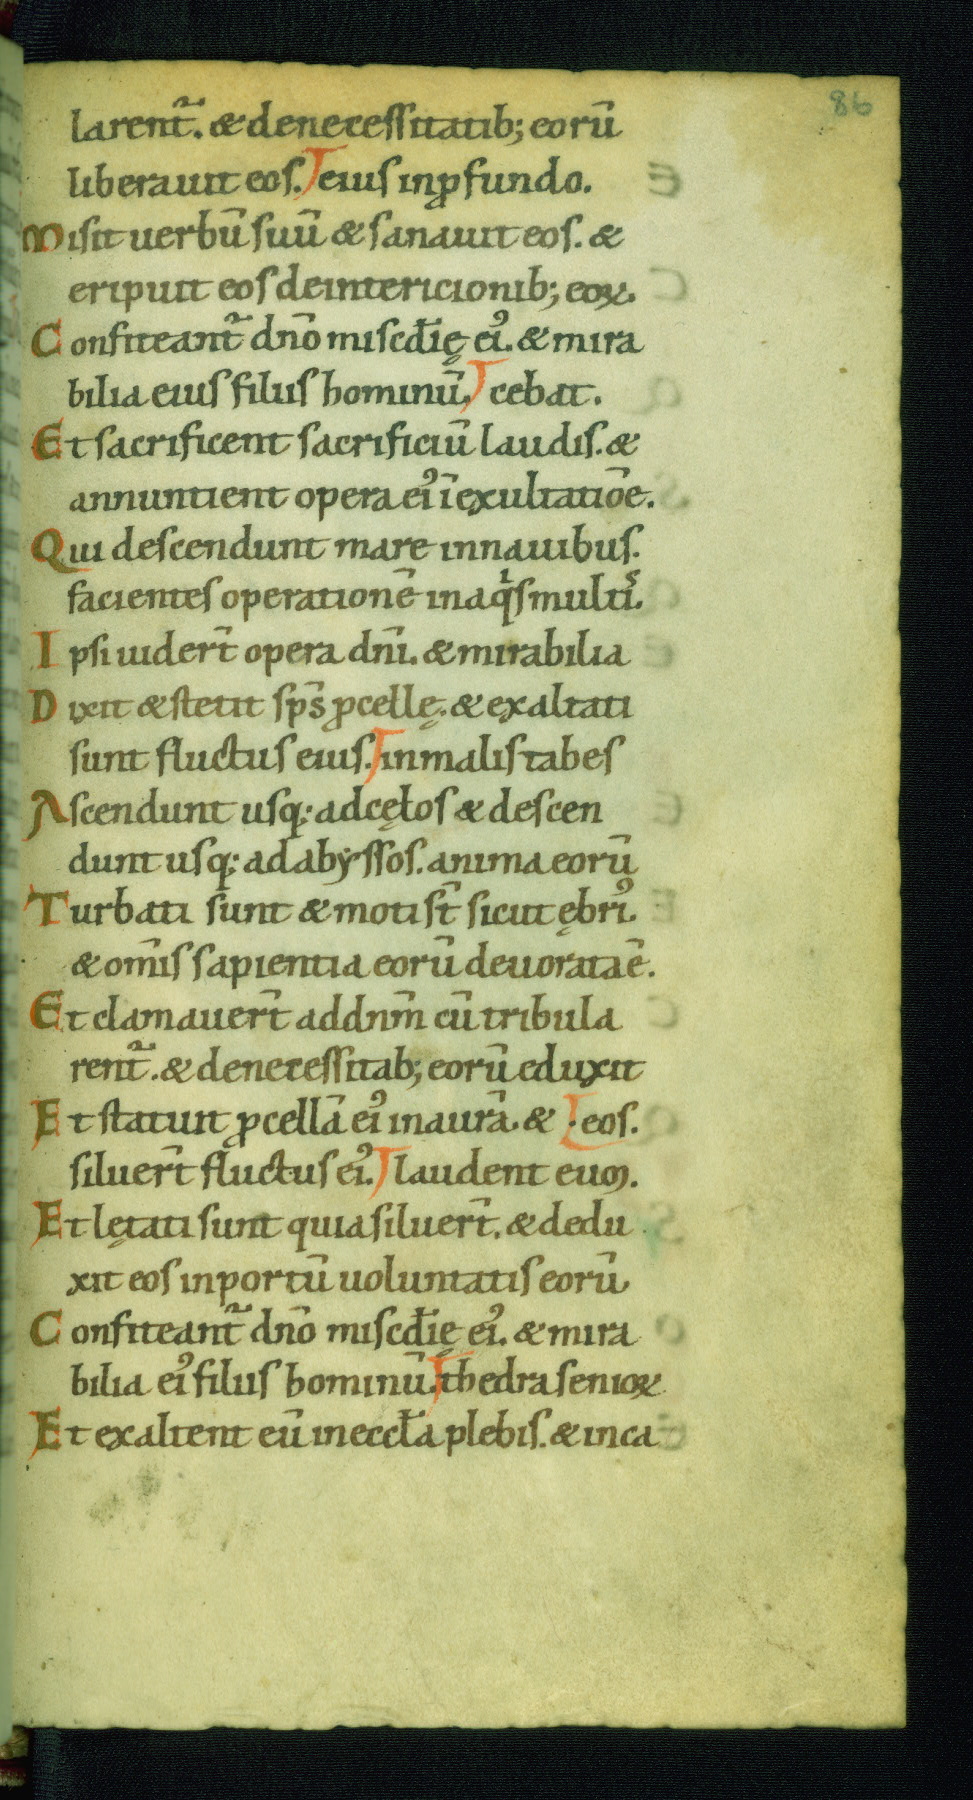 86
larent᷑. & denecessitatib; eorū
liberauit eos. eius inꝓfundo.
Misit uerbū suū & sanauit eos. &
eripuit eos deintericionib; eoꝝ.
Confiteant᷑ dn̄o miscd̄ię ei᾿. & mira
bilia eius filiis hominū. cebat.
Et sacrificent sacrificiū laudis. &
annuntient opera ei᾿ ī exultatiōe.
Qui descendunt mare innauibus.
facientes operationē inaqͥs multiˢ.
Ipsi uider̄t opera dn̄i. & mirabilia
Dixit & stetit sp̄s ꝓcellę. & exaltati
sunt fluctus eius. inmalis tabes
Ascendunt usq; adcęlos & descen
dunt usq; ad abẏssos. anima eorū
Turbati sunt & moti st̄ sicut ębri᾿.
& om̄is sapientia eorū deuorataē.
Et clamauer̄t addnm̄ cū tribula
rent᷑. & denecessitab; eorū eduxit
Et statuit ꝓcellā ei᾿ inaurā. & eos.
siluer̄t fluctus ei᾿. laudent eum.
Et lętati sunt quia siluer̄t. & dedu
xit eos inportū uoluntatis eorū
Confiteant᷑ dn̄o miscd̄ię ei᾿. & mira
bilia ei᾿ filiis hominū. thedra senioꝝ
Et exaltent eū ineccl̄a plebis. & inca